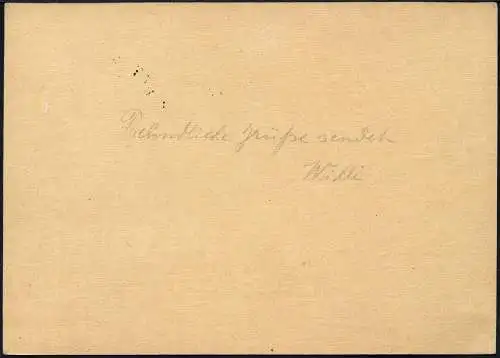 Freundliche Grüße sendet
Willi